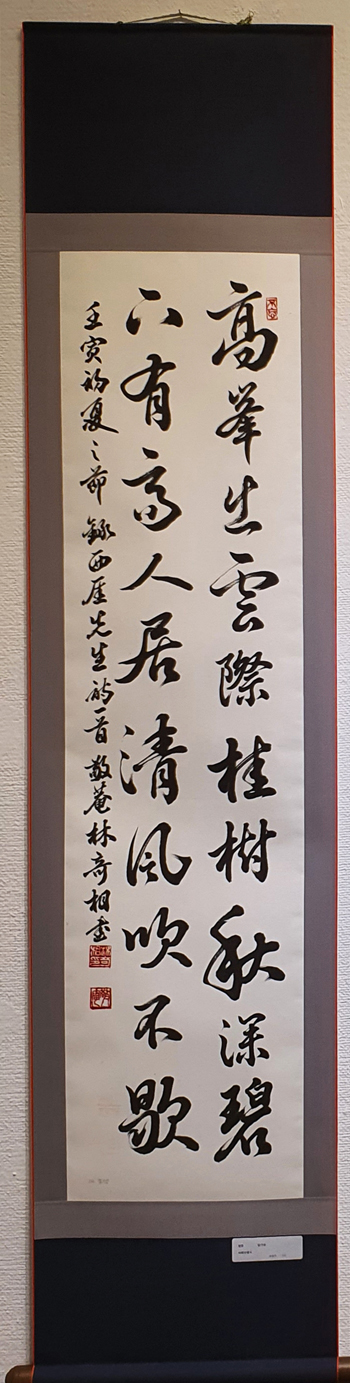 高峯出雲際桂樹秋深碧
下有高人居清風吹不歇
壬寅初夏之節錄西厓先生詩一首敬菴林奇相書